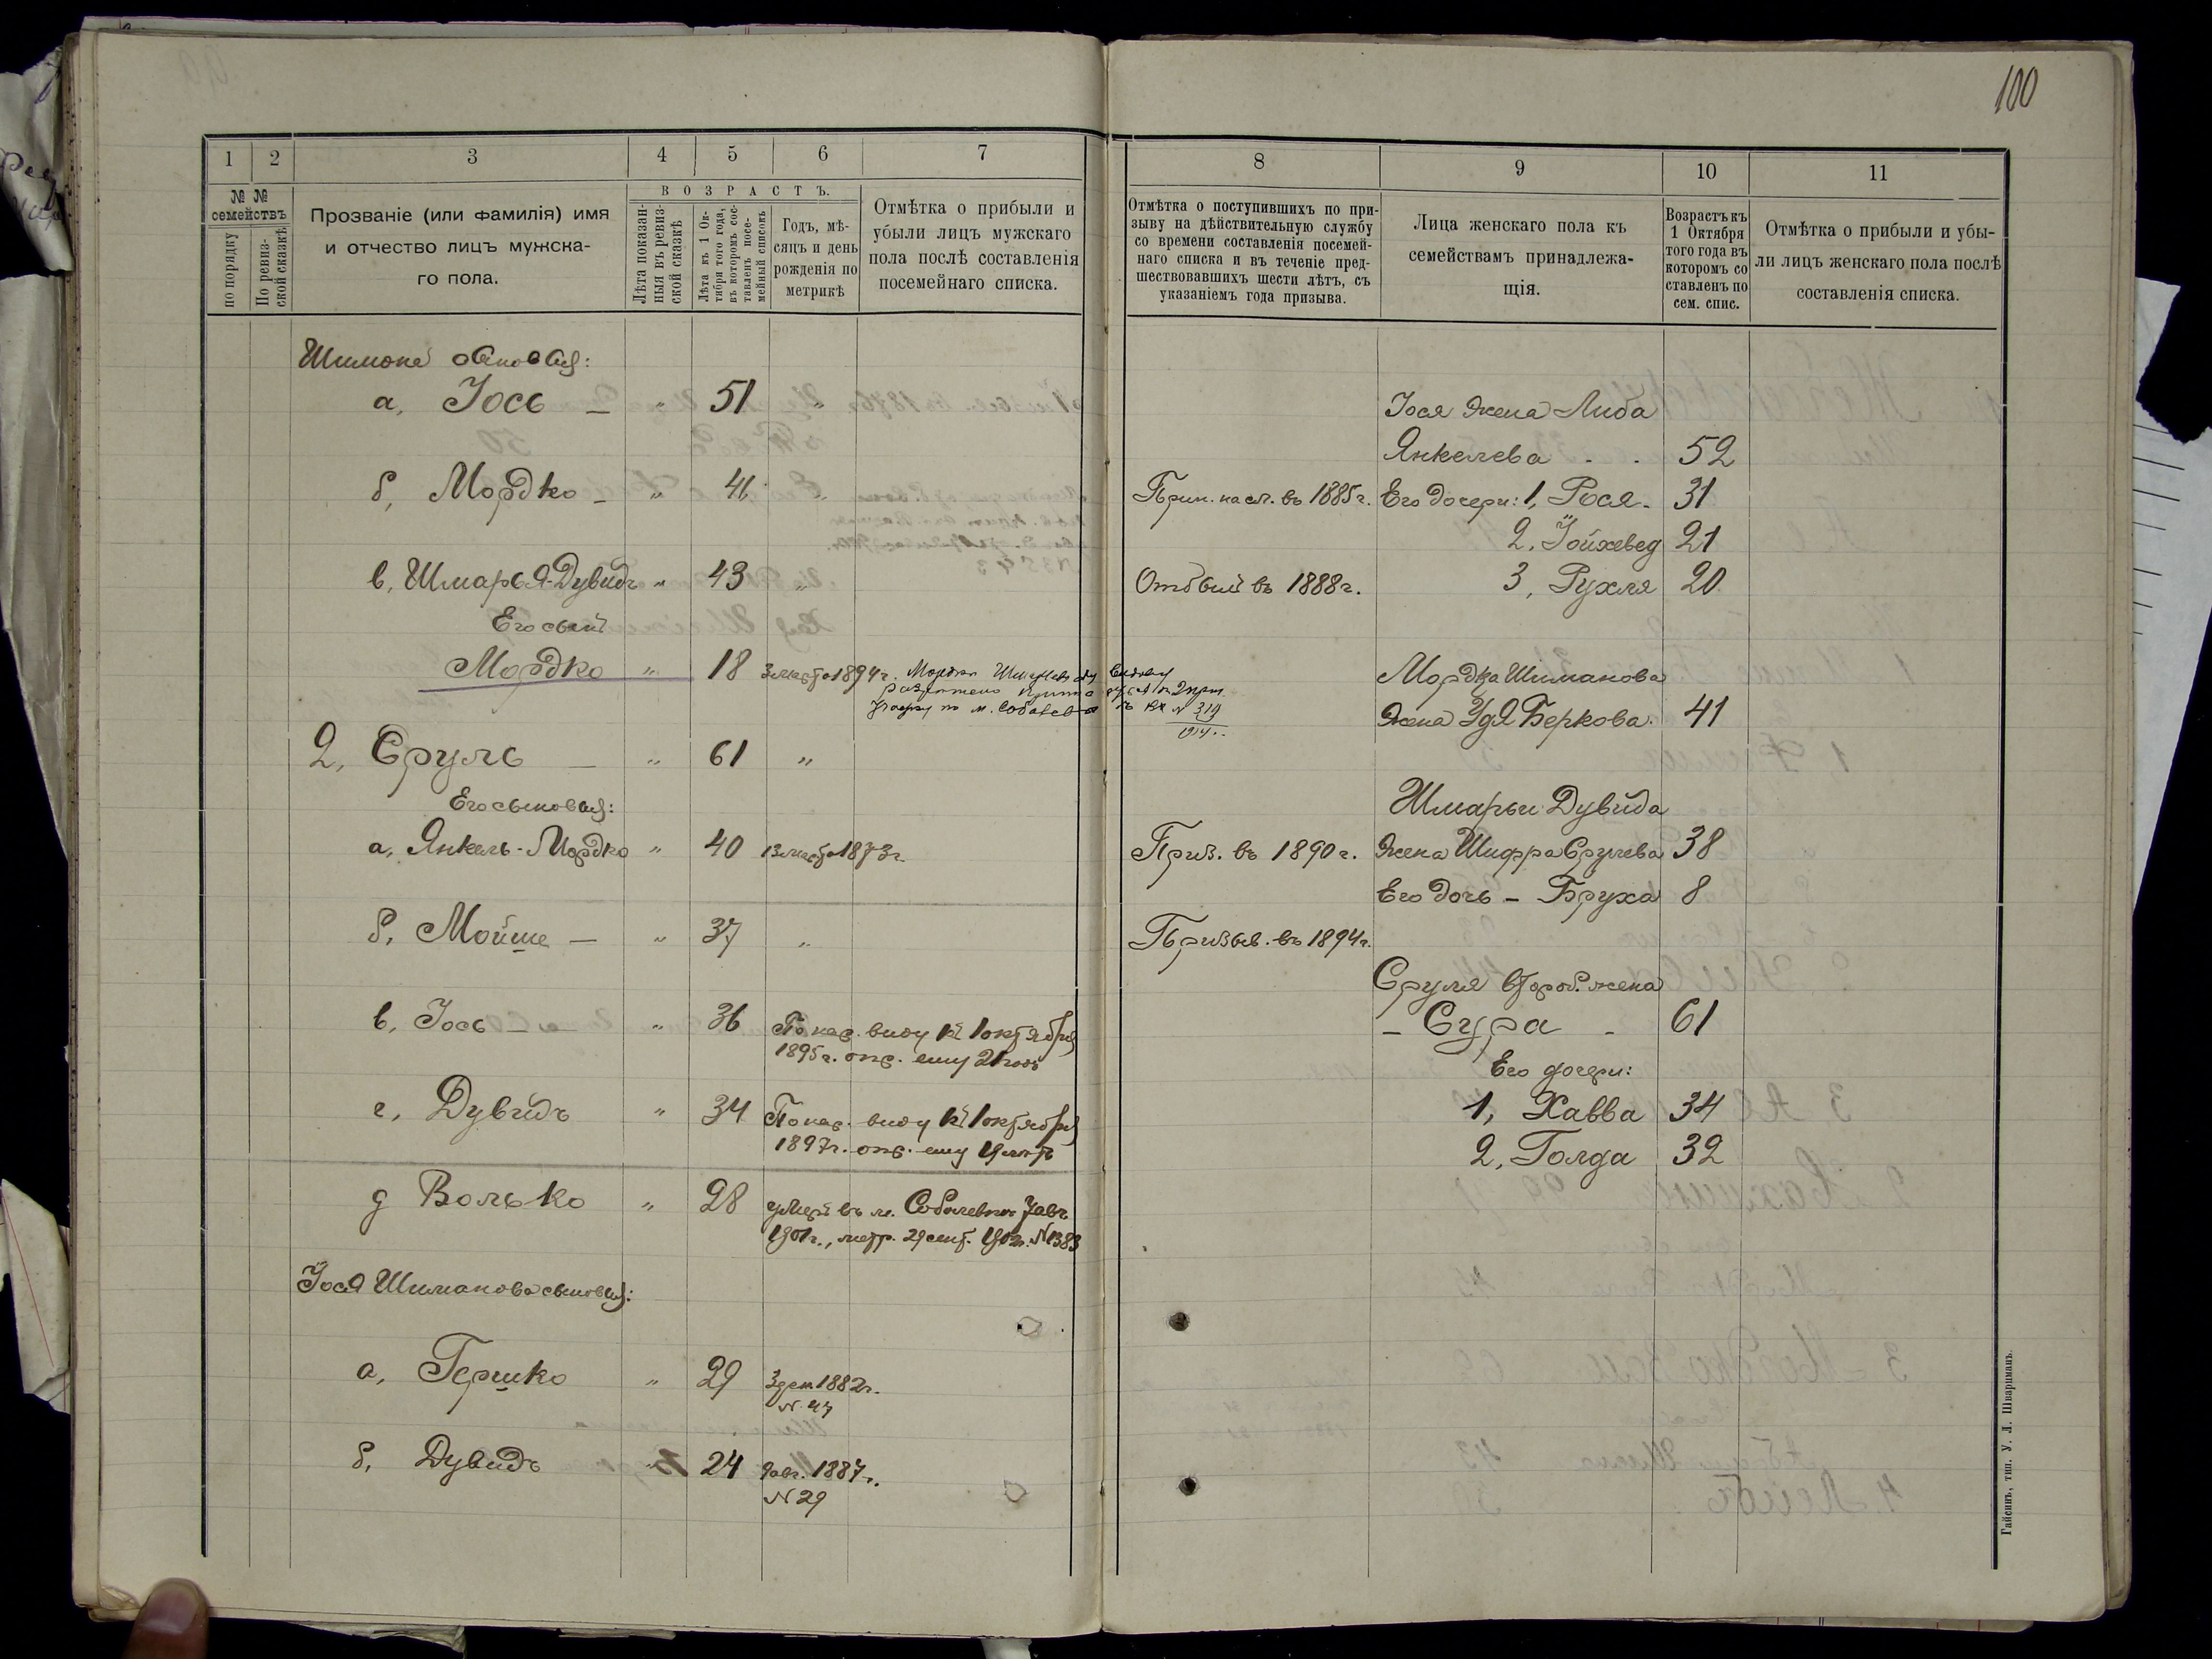 100
1 2 3 4 5 6 7
№ № семействъ
по порядку
По ревиз-
ской сказкѣ
Прозваніе (или фамилія) имя
и отчество лицъ мужска-
го пола.
ВОЗРАСТЪ.
Лѣта показан-
ныя въ ревиз-
ской сказкѣ
Лѣта къ 1 Ок-
тября того года,
въ которомъ сос-
тавленъ посе-
мейный списокъ
Годъ, мѣ-
сяцъ и день
рожденія по
метрикѣ
Отмѣтка о прибыли и
убыли лицъ мужскаго
пола послѣ составленія
посемейнаго списка.
Шимона сыновья:
а, Іось — " 51 "
б, Мордко — " 46 "
в, Шмарья-Дувидъ " 43 "
Его сынъ
Мордко " 18 1894 г.
2, Сруль — " 61 "
Его сыновья:
а, Янкель-Мордко " 40 1873 г.
б, Мойше — " 37 "
в, Іось — — " 36 По нар. виду къ 1 октября
1895 г. опр. ему 21 годъ
г, Дувидъ " 34 По нар. виду къ 1 октября
1897 г. опр. ему 19 лѣтъ
д Волько " 28 умеръ въ м. Соболевкѣ 7 авг.
1901 г., метр. 29 сент. 1902 г. № 1383
Іося Шиманова сыновья:
а, Гершко " 29 1882 г.
№ 47
б, Дувидъ 24 9 авг. 1887 г.
№ 29
8 9 10 11
Отмѣтка о поступившихъ по при-
зыву на дѣйствительную службу
со времени составленія посемей-
наго списка и въ теченіе пред-
шествовавшихъ шести лѣтъ, съ
указаніемъ года призыва.
Лица женскаго пола къ
семействамъ принадлежа-
щія.
Возрастъ къ
1 Октября
того года въ
которомъ со
ставленъ по
сем. спис.
Отмѣтка о прибыли и убы-
ли лицъ женскаго пола послѣ
составленія списка.
Іося жена Либа
Янкелева . . 52
Прин. на сл. въ 1885 г. Его дочери: 1, Рося - 31
2, Іойхевед 21
Отбывъ въ 1888 г. 3, Рухля 20
№ 319
1914 г.
Мордка Шиманова
жена Удя Беркова. 41
Шмарьи Дувида
Приз. въ 1890 г. жена Шифра Срулева 38
Его дочь — Бруха 8
Призыв. въ 1894 г.
Сруля втораб. жена
— Сура - 61
Его дочери:
1, Хавва 34
2, Голда 32
Гайсинъ, тип. У. Л. Шварцманъ.